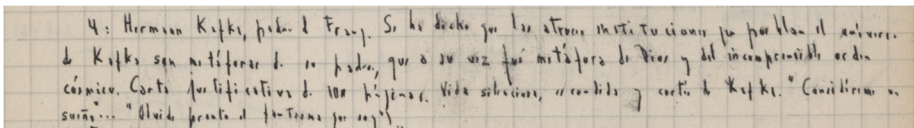 4: Hermann Kafka, padre d Franz. Se ha dicho que las atroces instituciones que pueblan el universo
d Kafka son metáforas d su padre, que a su vez fué metáfora de Dios y del incomprensible orden
cósmico. Carta justificativa d 100 páginas. Vida silenciosa, escondida y corta de Kafka. "Considéreme un
sueño"... "Olvide pronto el fantasma que soy")